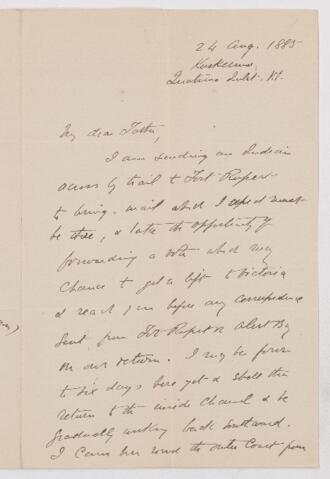 24 Aug. 1885
Koskeemo,
Quatsino Inlet. V.I.
My dear
I am sending an Indian
across by trail to Fort Rupert
to bring mail which I expect must
be there, & take the opportunity of
forwarding a note which may
chance to get a lift to Victoria
& reach you before any correspondence
sent from Fort Rupert or Alert Bay
on our return. I may be four
to six days here yet & shall then
return to the inside Channel & be
gradually working back Southward.
I came here round the outer Coast from